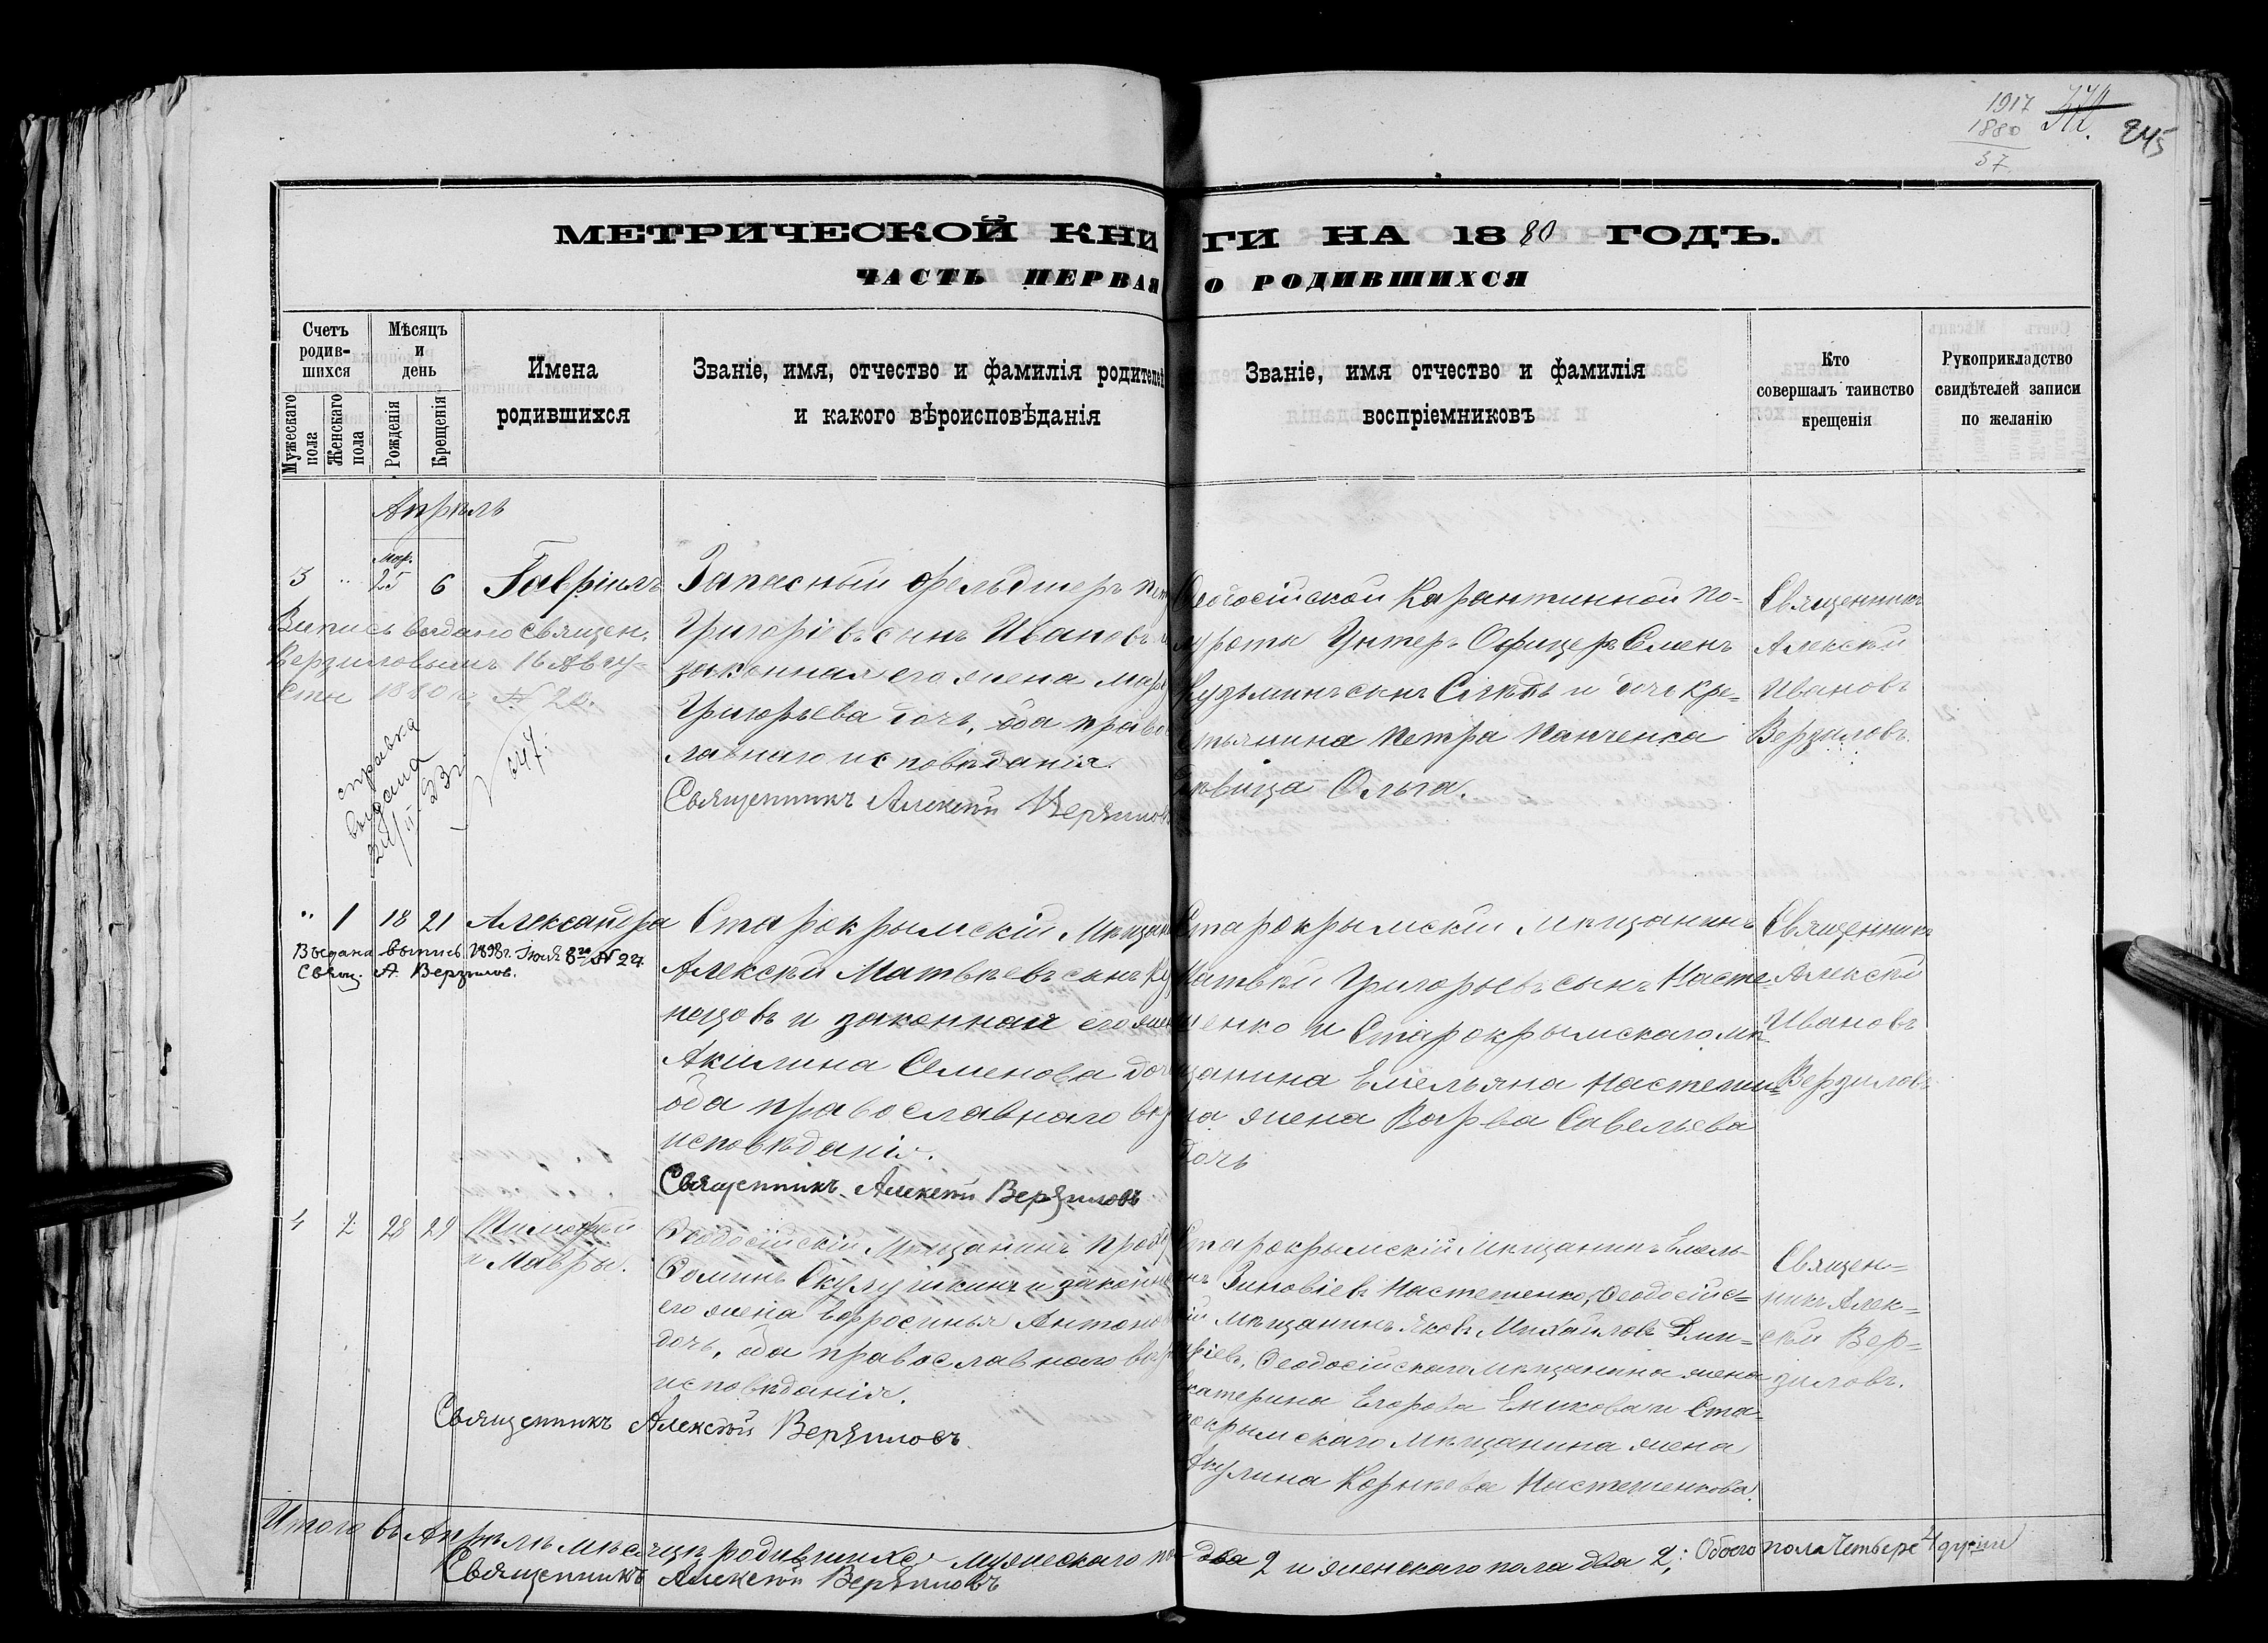 1917
1880
37
245
МЕТРИЧЕСКОЙ КНИГИ НА 1880 ГОДЪ.
ЧАСТЬ ПЕРВАЯ О РОДИВШИХСЯ
Счетъ родив-шихся
Мужескаго пола
Женскаго пола
Мѣсяцъ и день
Рожденія
Крещенія
Имена родившихся
Званіе, имя, отчество и фамилія родителей
и какого вѣроисповѣданія
Званіе, имя отчество и фамилія
воспріемниковъ
Кто
совершалъ таинство
крещенія
Рукоприкладство
свидѣтелей записи
по желанію
Апрѣль
Мар.
3 " 25 6 Гавріилъ
Запасный фельдшеръ
Григорій
сынъ Ивановъ и
законная его жена
Григорьева дочь, оба право
славнаго исповѣданія.
Священникъ Алексѣй Верзиловъ
Ѳеодосійской Карантинной по-
луроты Унтеръ Офицеръ Семенъ
Кузьминъ сынъ и дочь кре-
стьянина Петра Панченка
дѣвица Ольга.
Священникъ
Алексѣй
Ивановъ
Верзиловъ.
Выпись выдана священ.
Верзиловымъ 16 Авгу-
ста 1880 г. № 20.
справка
выдана
24/II 23 г
347.
" 1 18 21 Александра
Старокрымскій Мѣщан
Алексѣй Матвѣевъ сынъ Куз
нецовъ и законная его жен
Акилина Семенова доч
оба православнаго вѣр
исповѣданія.
Священникъ Алексѣй Верзиловъ
Старокрымскій мѣщанинъ
Матвѣй Григорьевъ сынъ Насте-
шенко и Старокрымскаго мѣ-
щанина Емельяна
жена Варва Савельева
дочь
Священникъ
Алексѣй
Ивановъ
Верзиловъ
Выдана выпись 1898 г. Іюля 8го № 24
Свящ. А. Верзиловъ.
4 2 28 29 Тимоѳей
и Мавры.
Ѳеодосійскій Мѣщанинъ
Ѳоминъ и законн
его жена Ефросинья Антоно
дочь, оба православнаго вѣр
исповѣданія.
Священникъ Алексѣй Верзиловъ
Старокрымскій Мѣщанинъ Емель-
нъ Зиновіевъ Настешенко, Ѳеодосійс-
кій мѣщанинъ Яковъ Михайловъ Дми-
тріевъ, Ѳеодосійскаго мѣщанина жена
Екатерина Егорова Еникова и Ста-
рокрымскаго мѣщанина жена
Акулина Настешенкова.
Священ-
никъ Алек-
сѣй Вер-
зиловъ.
Итого въ Апрѣлѣ мѣсяцѣ родившихся мужескаго по два 2 и женскаго пола два 2; Обоего пола Четыре 4 души
Священникъ Алексѣй Верзиловъ